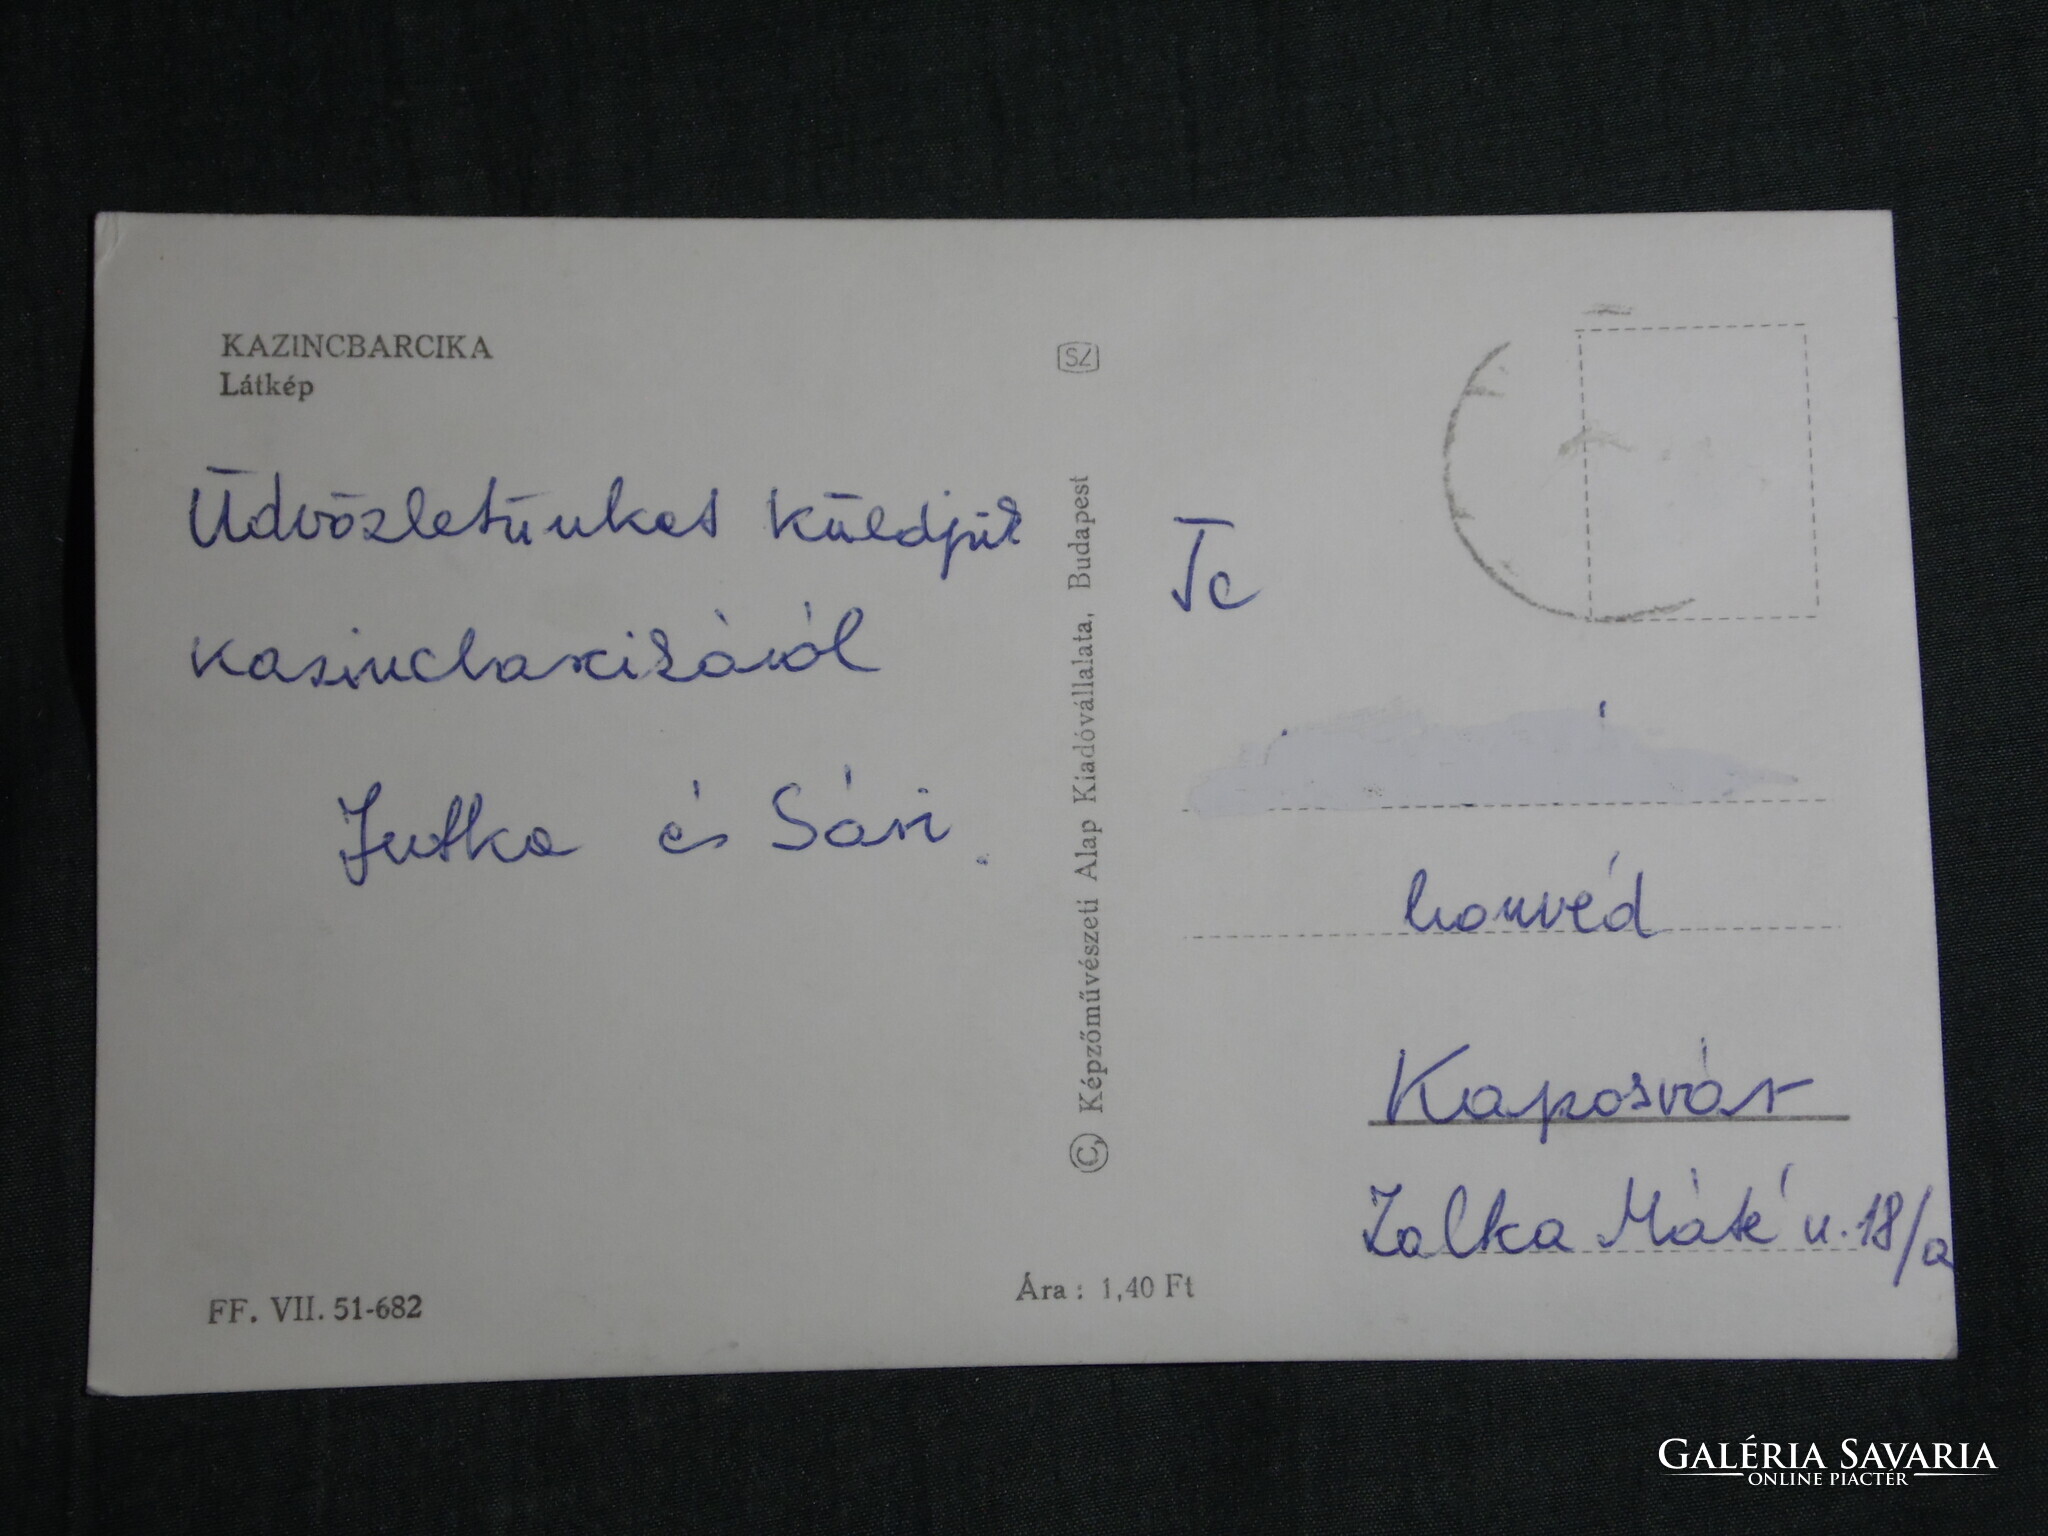 KAZINCBARCIKA
Látkép
Üdvözletünket küldjük
Kazincbarcikáról
Jutka és Sári.
FF. VII. 51-682
SZ
© Képzőművészeti Alap Kiadóvállalata, Budapest
Ára: 1,40 Ft
honvéd
Kaposvár
Zalka Máté u. 18/a
GALÉRIA SAVARIA
ONLINE PIACTÉR